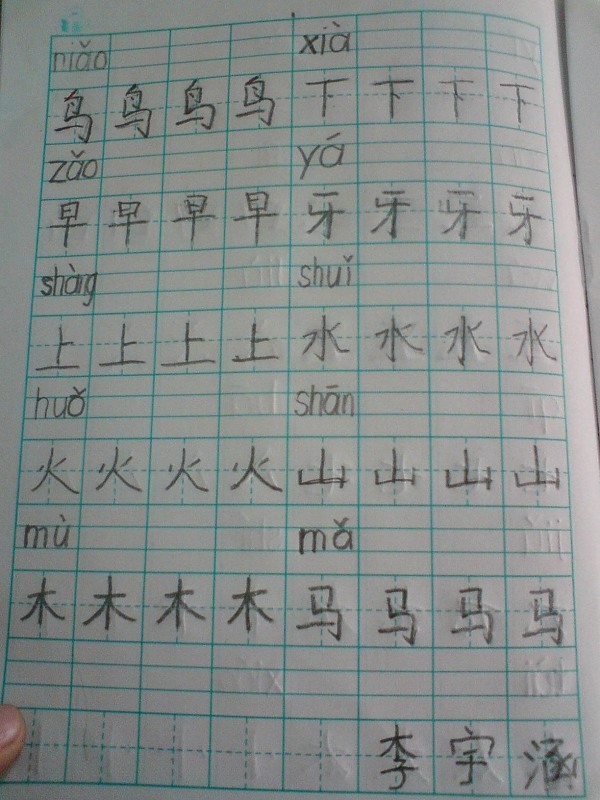 niǎo xià
鸟 鸟 鸟 鸟 下 下 下 下
zǎo yá
早 早 早 早 牙 牙 牙 牙
shàng shuǐ
上 上 上 上 水 水 水 水
huǒ shān
火 火 火 火 山 山 山 山
mù mǎ
木 木 木 木 马 马 马 马
李 宇 涵